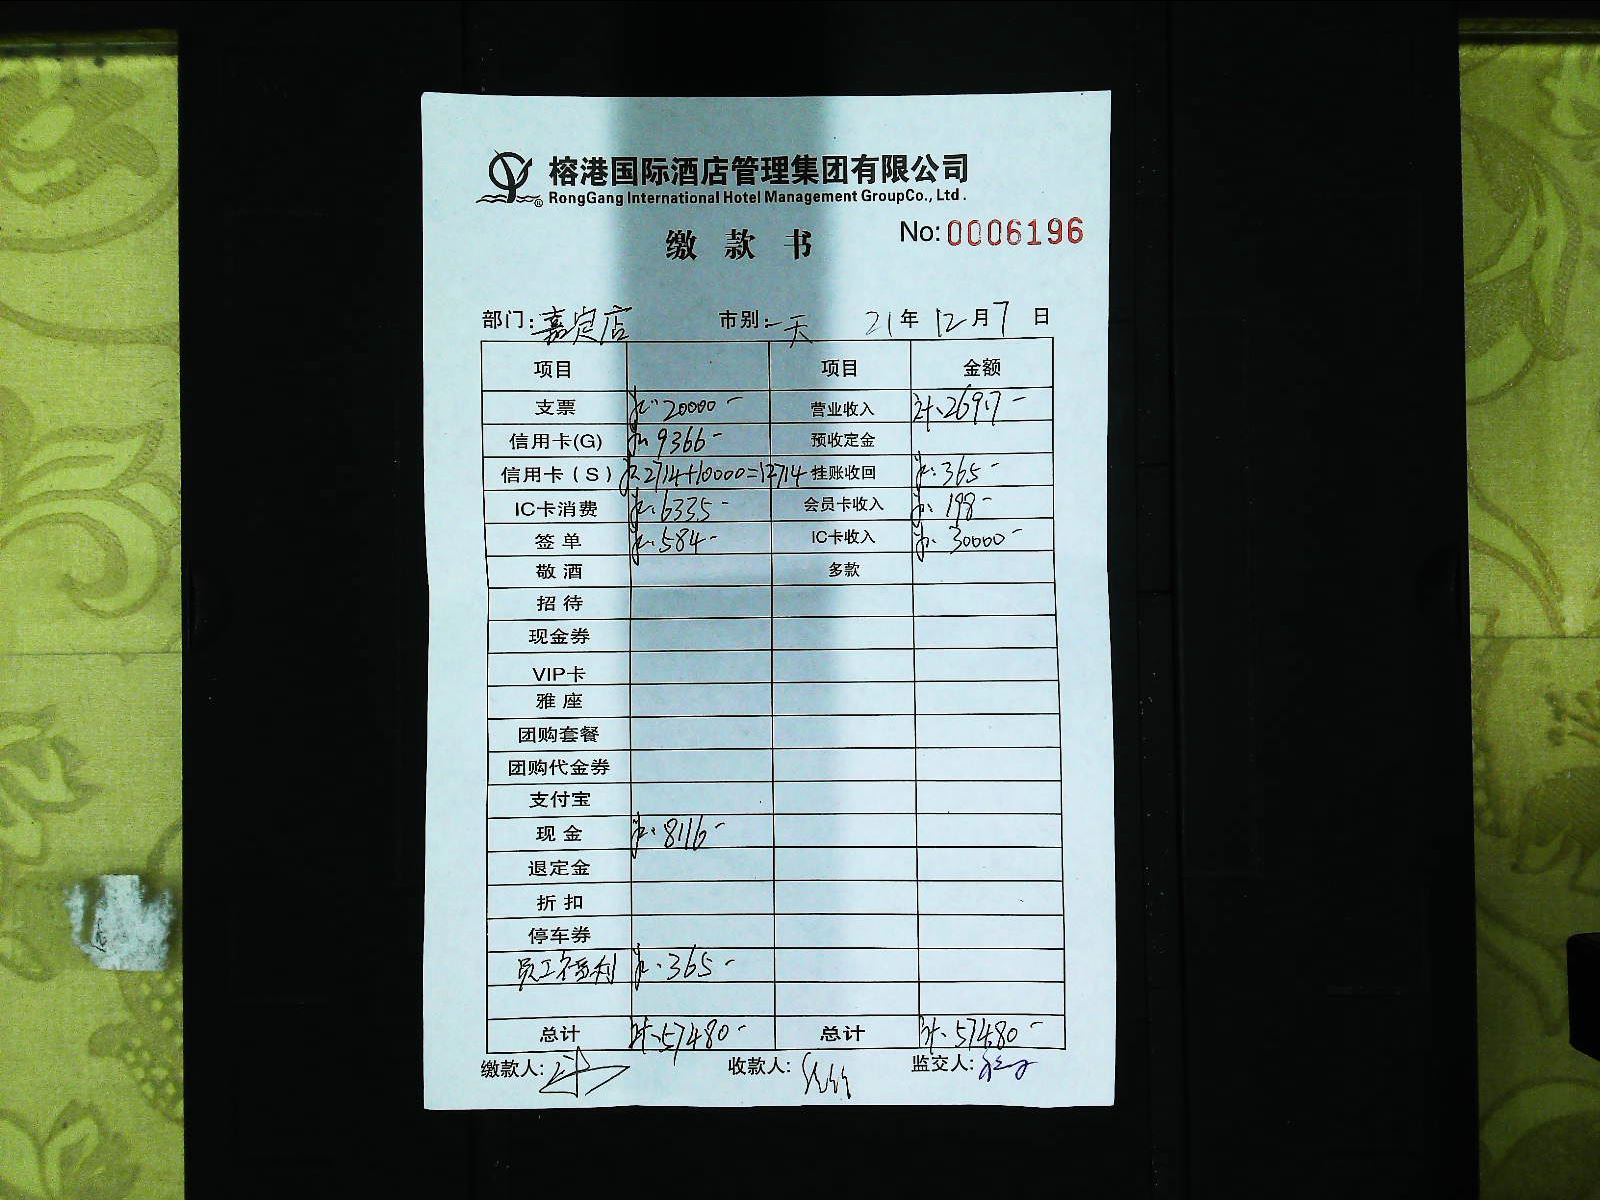 榕港国际酒店管理集团有限公司
® RongGang International Hotel Management GroupCo., Ltd.
缴款书
No:0006196
部门:嘉定店 市别:一天 21年12月7日
项目 项目 金额
支票 20000- 营业收入 26917-
信用卡(G) 9366- 预收定金
信用卡(S) 2714+10000=12714 挂账收回 365-
IC卡消费 6335- 会员卡收入 198-
签单 584- IC卡收入 30000-
敬酒 多款
招待
现金券
VIP卡
雅座
团购套餐
团购代金券
支付宝
现金 8116-
退定金
折扣
停车券
员工福利 365-
总计 57480- 总计 57480-
缴款人: 收款人: 监交人: